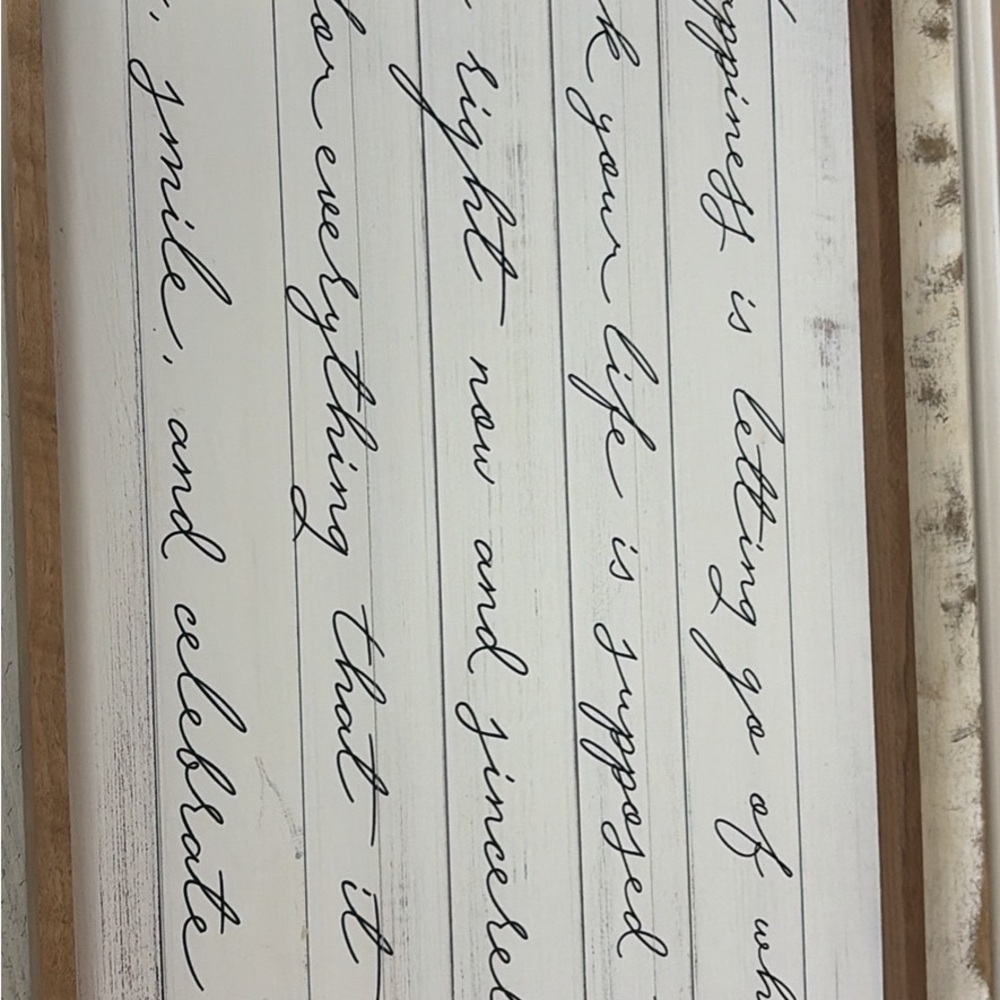 ppiness is letting go of wh
k your life is supposed
right now and sincerel
for everything that it
smile, and celebrate